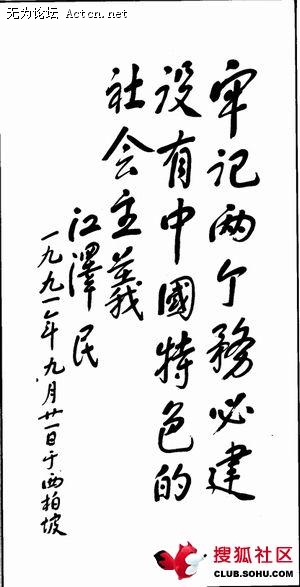 无为论坛 Actcn.net
牢记两个務必建
设有中國特色的
社会主義
江澤民
一九九一年九月廿一日于西柏坡
搜狐社区
CLUB.SOHU.COM